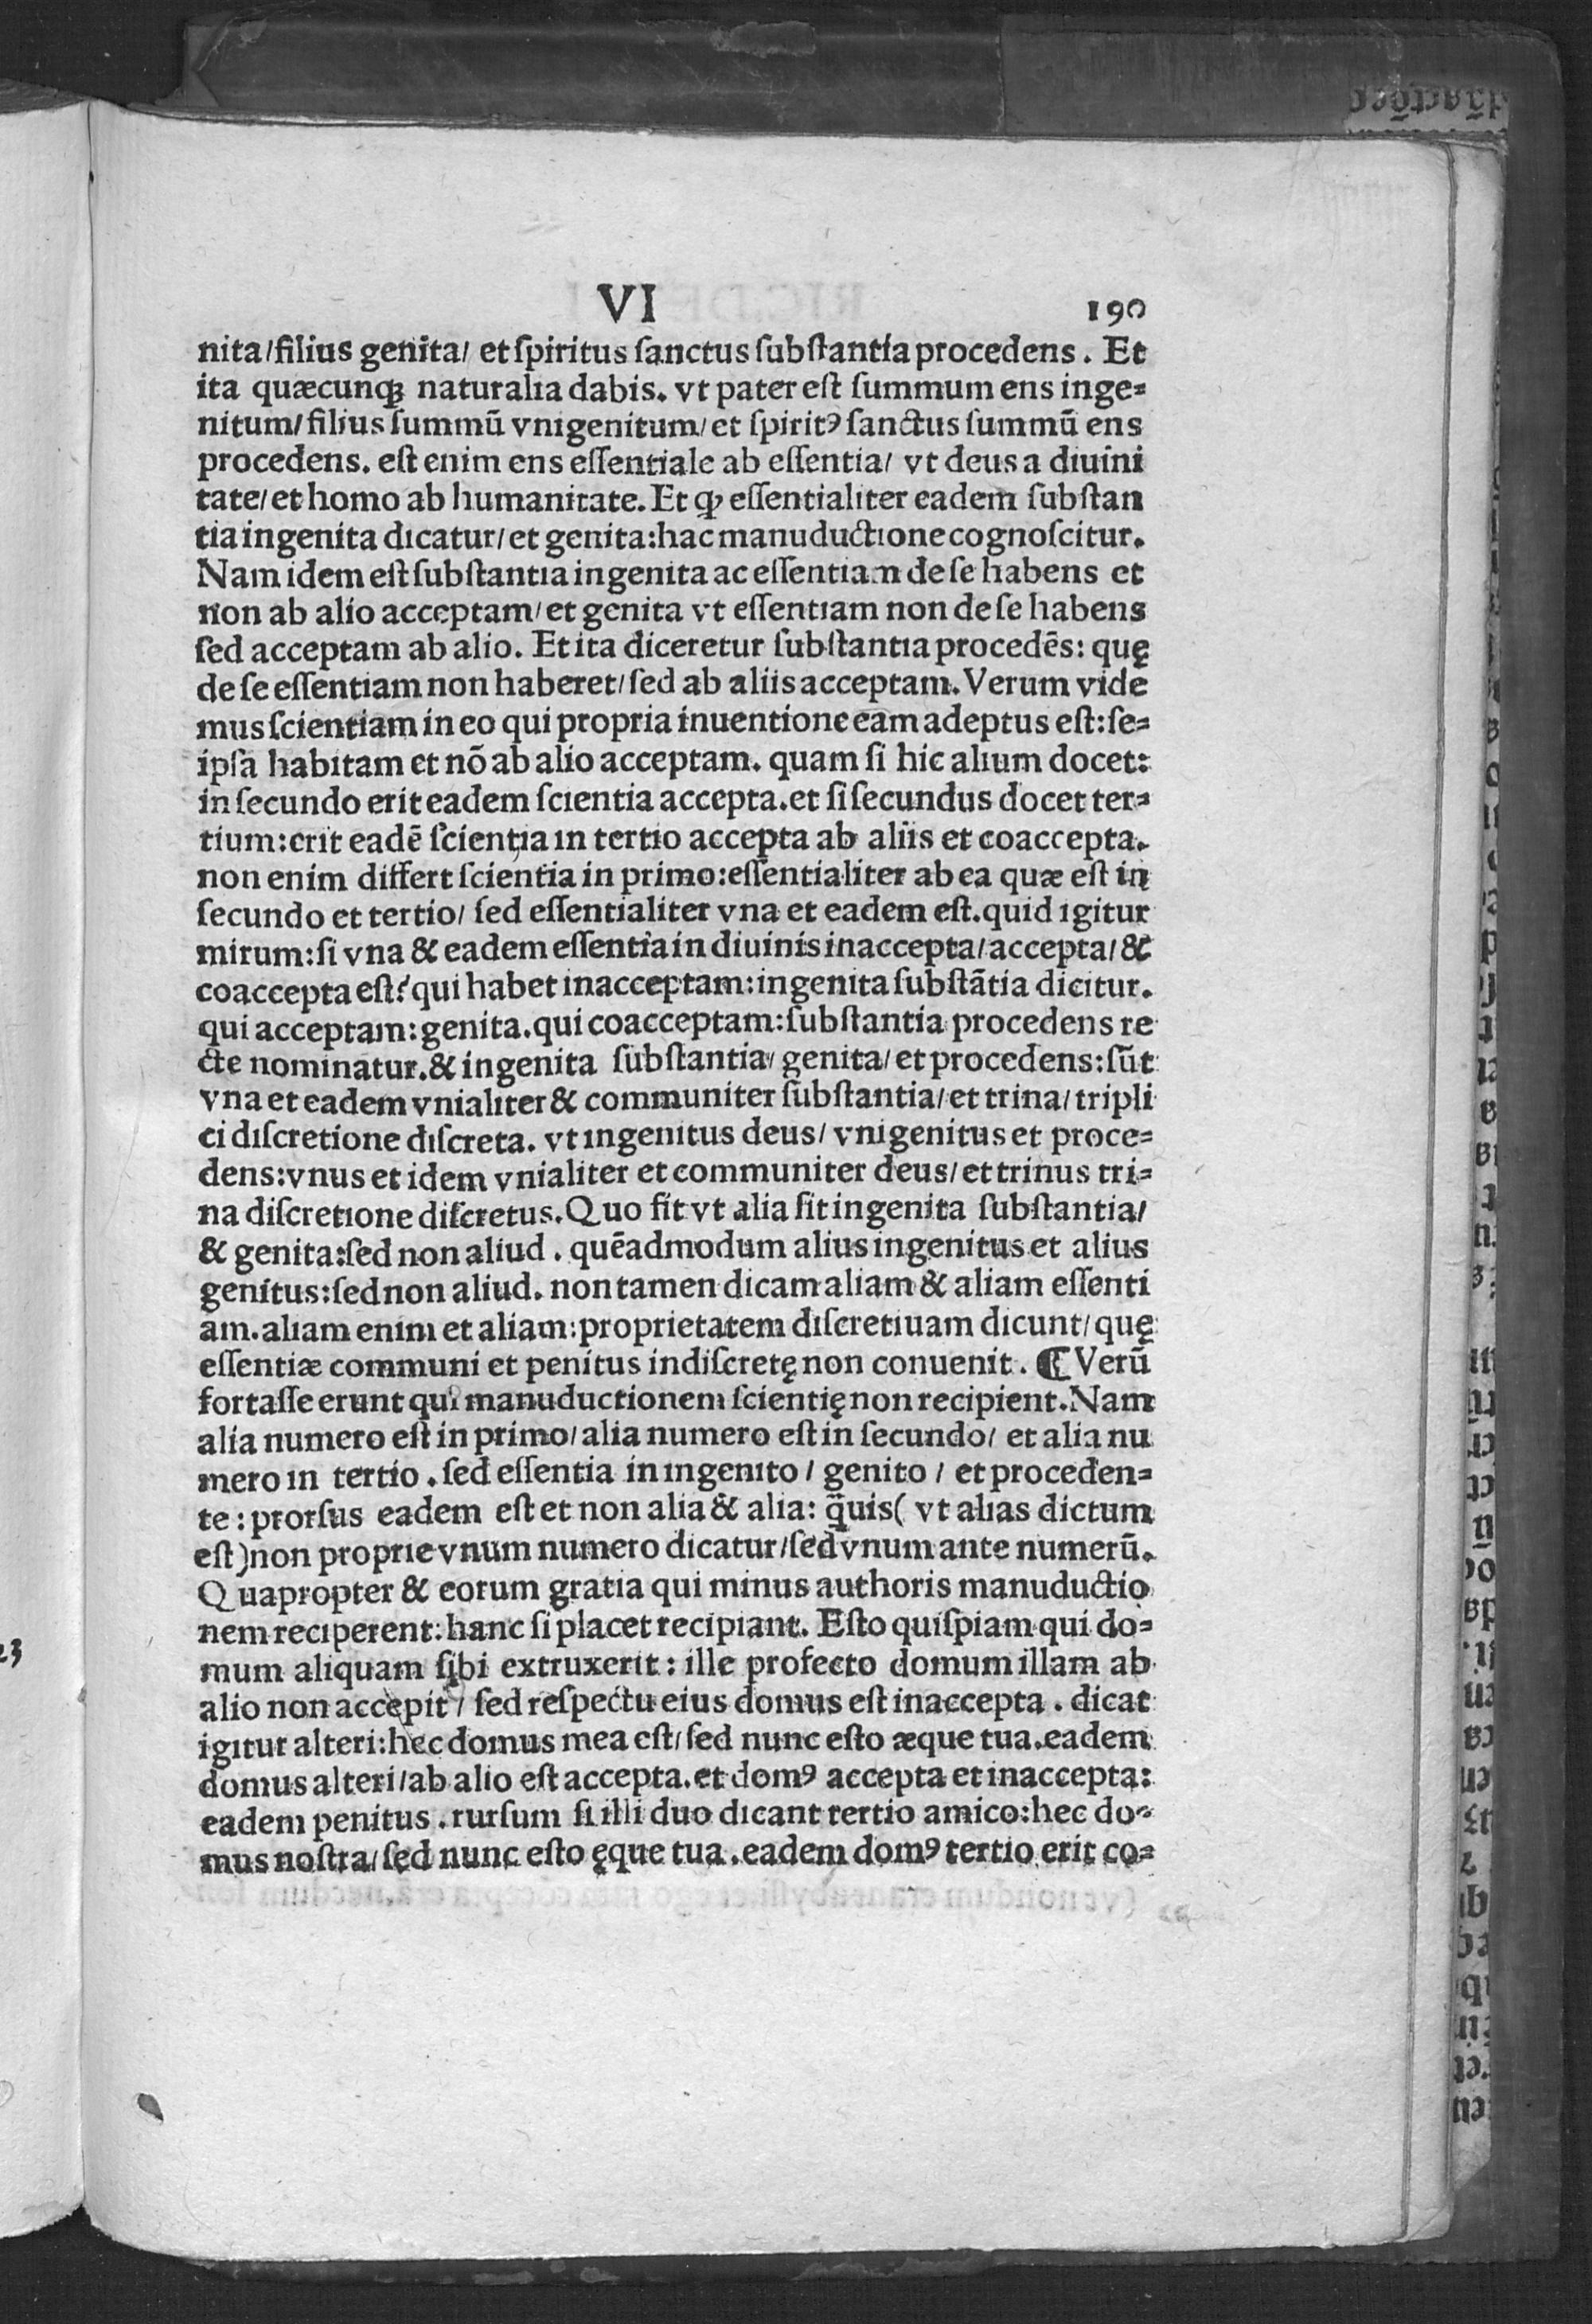 VI 190
nita/filius genita/ et ſpiritus ſanctus ſubſtantia procedens. Et
ita quæcunqꝫ naturalia dabis. vt pater eſt ſummum ens inge⸗
nitum/filius ſummū vnigenitum/et ſpiritꝰ ſanctus ſummū ens
procedens. eſt enim ens eſſentiale ab eſſentia/ vt deus a diuini
tate/et homo ab humanitate. Et ꝙ eſſentialiter eadem ſubſtan
tia ingenita dicatur/et genita: hac manuductione cognoſcitur.
Nam idem eſt ſubſtantia ingenita ac eſſentiam de ſe habens et
non ab alio acceptam/et genita vt eſſentiam non de ſe habens
ſed acceptam ab alio. Et ita diceretur ſubſtantia procedēs: quę
de ſe eſſentiam non haberet/ſed ab aliis acceptam. Verum vide
mus ſcientiam in eo qui propria inuentione eam adeptus eſt: ſe⸗
ipſā habitam et nō ab alio acceptam. quam ſi hic alium docet:
in ſecundo erit eadem ſcientia accepta. et ſi ſecundus docet ter⸗
tium: erit eadē ſcientia in tertio accepta ab aliis et coaccepta.
non enim differt ſcientia in primo: eſſentialiter ab ea quæ eſt in
ſecundo et tertio/ ſed eſſentialiter vna et eadem eſt. quid igitur
mirum: ſi vna & eadem eſſentia in diuinis inaccepta/accepta/&
coaccepta eſt? qui habet inacceptam: ingenita ſubſtātia dicitur.
qui acceptam: genita. qui coacceptam: ſubſtantia procedens re
cte nominatur. & ingenita ſubſtantia/ genita/et procedens: ſūt
vna et eadem vnialiter & communiter ſubſtantia/et trina/tripli
ci diſcretione diſcreta. vt ingenitus deus/ vnigenitus et proce⸗
dens: vnus et idem vnialiter et communiter deus/et trinus tri⸗
na diſcretione diſcretus. Quo fit vt alia ſit ingenita ſubſtantia/
& genita: ſed non aliud. quēadmodum alius ingenitus et alius
genitus: ſed non aliud. non tamen dicam aliam & aliam eſſenti
am. aliam enim et aliam: proprietatem diſcretiuam dicunt/quę
eſſentiæ communi et penitus indiſcretę non conuenit. ¶ Verū
fortaſſe erunt qui manuductionem ſcientię non recipient. Nam
alia numero eſt in primo/alia numero eſt in ſecundo/ et alia nu
mero in tertio. ſed eſſentia in ingenito/ genito/ et proceden⸗
te: prorſus eadem eſt et non alia & alia: q̄uis( vt alias dictum
eſt) non proprie vnum numero dicatur/ſed vnum ante numerū.
Quapropter & eorum gratia qui minus authoris manuductio
nem reciperent: hanc ſi placet recipiant. Eſto quiſpiam qui do⸗
mum aliquam ſibi extruxerit: ille profecto domum illam ab
alio non accepit/ ſed reſpectu eius domus eſt inaccepta. dicat
igitur alteri: hec domus mea eſt/ſed nunc eſto æque tua. eadem
domus alteri/ab alio eſt accepta. et domꝰ accepta et inaccepta:
eadem penitus. rurſum ſi illi duo dicant tertio amico: hec do⸗
mus noſtra/ſed nunc eſto ęque tua. eadem domꝰ tertio erit co⸗